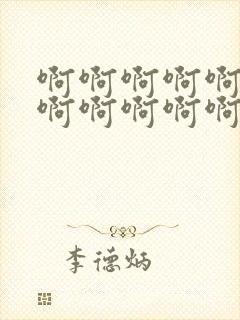 啊啊啊啊啊
啊啊啊啊啊
李德炳